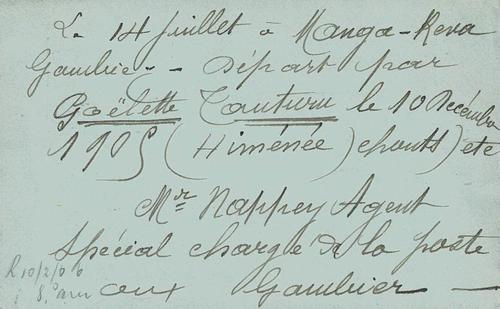 Le 14 Juillet à Manga-Reva
Gambier - Départ par
Goëlette Tauturu le 10 Décembre
1905 (Himénée) chants) etc
Mr Nappey Agent
Spécial chargé de la poste
aux Gambier —
R 10/2/06